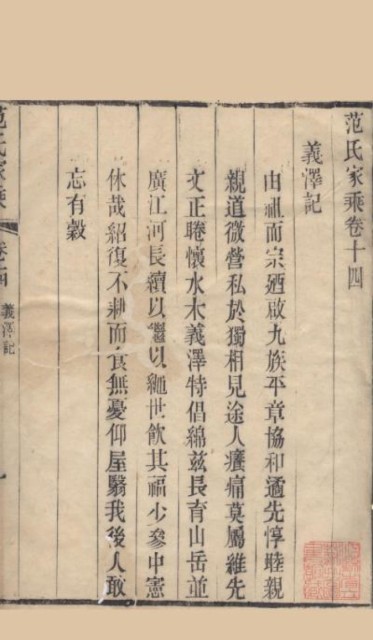 范氏家乘卷十四
義澤記
由祖而宗廼啟九族平章協和遹先惇睦親
親道微營私於獨相見途人癢痛莫屬維先
文正睠懷水木義澤特倡綿兹長育山岳並
廣江河長續以繼以繩世飲其福少參中憲
休哉紹復不耕而食無憂仰屋翳我後人敢
忘有穀
范氏家乘
卷十四
義澤記